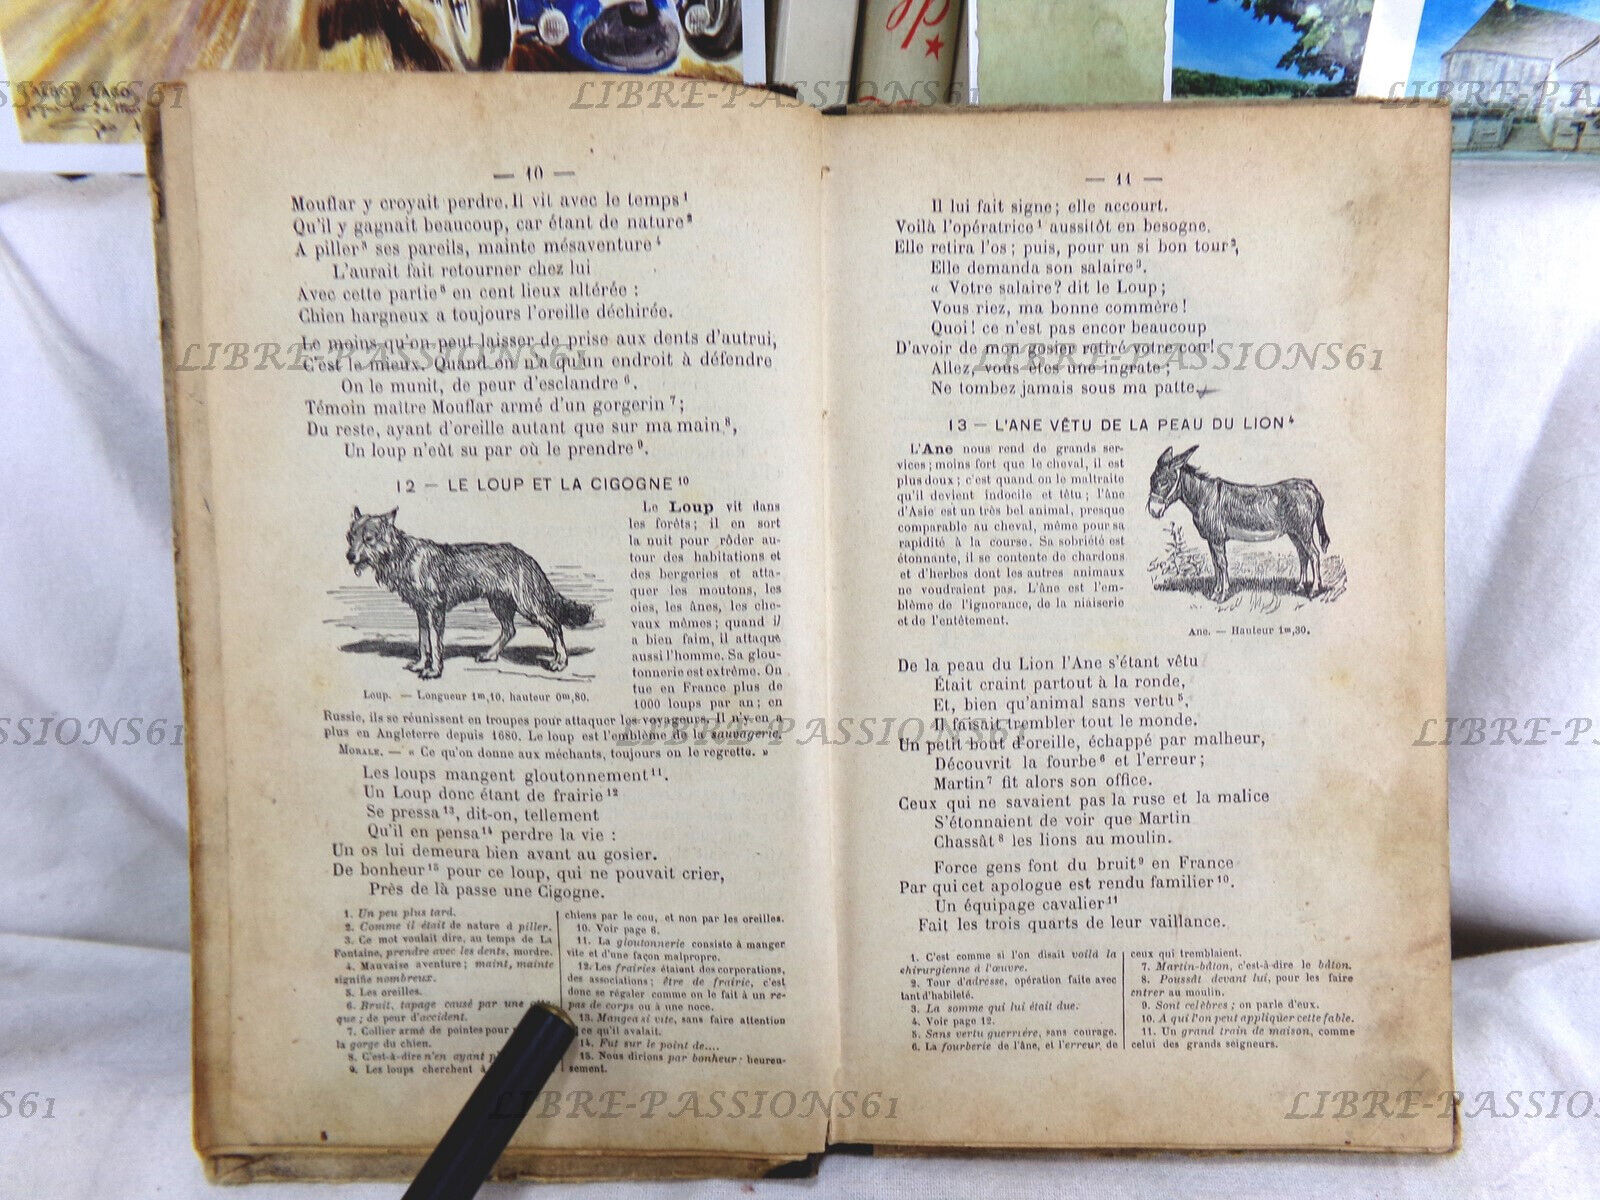 — 10 —
Mouflar y croyait perdre. Il vit avec le temps 1
Qu'il y gagnait beaucoup, car étant de nature 2
A piller 3 ses pareils, mainte mésaventure 4
L'aurait fait retourner chez lui
Avec cette partie 5 en cent lieux altérée :
Chien hargneux a toujours l'oreille déchirée.
Le moins qu'on peut laisser de prise aux dents d'autrui,
C'est le mieux. Quand on n'a qu'un endroit à défendre
On le munit, de peur d'esclandre 6.
Témoin maître Mouflar armé d'un gorgerin 7 ;
Du reste, ayant d'oreille autant que sur ma main 8,
Un loup n'eût su par où le prendre 9.
12 — LE LOUP ET LA CIGOGNE 10
Le Loup vit dans
les forêts ; il en sort
la nuit pour rôder au-
tour des habitations et
des bergeries et atta-
quer les moutons, les
oies, les ânes, les che-
vaux mêmes ; quand il
a bien faim, il attaque
aussi l'homme. Sa glou-
tonnerie est extrême. On
tue en France plus de
1000 loups par an ; en
Loup. — Longueur 1m,10, hauteur 0m,80.
Russie, ils se réunissent en troupes pour attaquer les voyageurs. Il n'y en a
plus en Angleterre depuis 1680. Le loup est l'emblème de la sauvagerie.
MORALE. — « Ce qu'on donne aux méchants, toujours on le regrette. »
Les loups mangent gloutonnement 11.
Un Loup donc étant de frairie 12
Se pressa 13, dit-on, tellement
Qu'il en pensa 14 perdre la vie :
Un os lui demeura bien avant au gosier.
De bonheur 15 pour ce loup, qui ne pouvait crier,
Près de là passe une Cigogne.
1. Un peu plus tard.
2. Comme il était de nature à piller.
3. Ce mot voulait dire, au temps de La
Fontaine, prendre avec les dents, mordre.
4. Mauvaise aventure ; maint, mainte
signifie nombreux.
5. Les oreilles.
6. Bruit, tapage causé par une
que ; de peur d'accident.
7. Collier armé de pointes pour
la gorge du chien.
8. C'est-à-dire n'en ayant
9. Les loups cherchent à
chiens par le cou, et non par les oreilles.
10. Voir page 6.
11. La gloutonnerie consiste à manger
vite et d'une façon malpropre.
12. Les frairies étaient des corporations,
des associations ; être de frairie, c'est
donc se régaler comme on le fait à un re-
pas de corps ou à une noce.
13. Mangea si vite, sans faire attention
ce qu'il avalait.
14. Fut sur le point de....
15. Nous dirions par bonheur : heureu-
sement.
— 11 —
Il lui fait signe ; elle accourt.
Voilà l'opératrice 1 aussitôt en besogne.
Elle retira l'os ; puis, pour un si bon tour 2,
Elle demanda son salaire 3.
« Votre salaire ? dit le Loup ;
Vous riez, ma bonne commère !
Quoi ! ce n'est pas encor beaucoup
D'avoir de mon gosier retiré votre cou !
Allez, vous êtes une ingrate ;
Ne tombez jamais sous ma patte.
13 — L'ANE VÊTU DE LA PEAU DU LION 4
L'Ane nous rend de grands ser-
vices ; moins fort que le cheval, il est
plus doux ; c'est quand on le maltraite
qu'il devient indocile et têtu ; l'âne
d'Asie est un très bel animal, presque
comparable au cheval, même pour sa
rapidité à la course. Sa sobriété est
étonnante, il se contente de chardons
et d'herbes dont les autres animaux
ne voudraient pas. L'âne est l'em-
blème de l'ignorance, de la niaiserie
et de l'entêtement.
Ane. — Hauteur 1m,30.
De la peau du Lion l'Ane s'étant vêtu
Était craint partout à la ronde,
Et, bien qu'animal sans vertu 5,
Il faisait trembler tout le monde.
Un petit bout d'oreille, échappé par malheur,
Découvrit la fourbe 6 et l'erreur ;
Martin 7 fit alors son office.
Ceux qui ne savaient pas la ruse et la malice
S'étonnaient de voir que Martin
Chassât 8 les lions au moulin.
Force gens font du bruit 9 en France
Par qui cet apologue est rendu familier 10.
Un équipage cavalier 11
Fait les trois quarts de leur vaillance.
1. C'est comme si l'on disait voilà la
chirurgienne à l'œuvre.
2. Tour d'adresse, opération faite avec
tant d'habileté.
3. La somme qui lui était due.
4. Voir page 12.
5. Sans vertu guerrière, sans courage.
6. La fourberie de l'âne, et l'erreur de
ceux qui tremblaient.
7. Martin-bâton, c'est-à-dire le bâton.
8. Poussât devant lui, pour les faire
entrer au moulin.
9. Sont célèbres ; on parle d'eux.
10. A qui l'on peut appliquer cette fable.
11. Un grand train de maison, comme
celui des grands seigneurs.
LIBRE-PASSIONS61